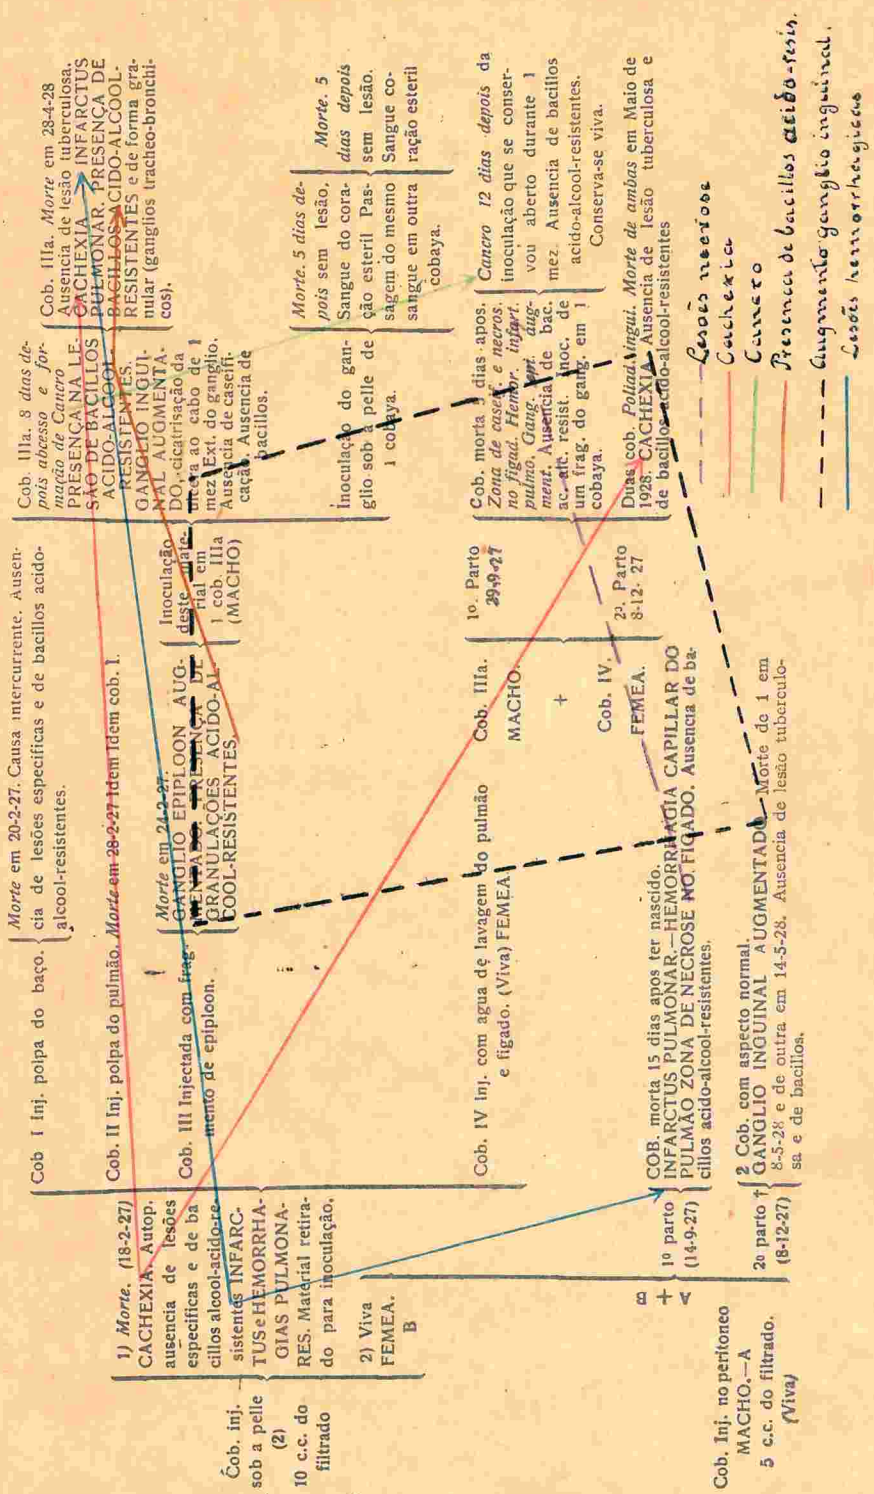 Cob. inj.
sob a pelle
(2)
10 c.c. do
filtrado
1) Morte. (18-2-27)
CACHEXIA. Autop.
ausencia de lesões
especificas e de ba
cillos alcool-acido-re
sistentes INFARC-
TUS e HEMORRHA-
GIAS PULMONA-
RES. Material retira-
do para inoculação.
2) Viva
FEMEA.
B
Cob I Inj. polpa do baço.
Morte em 20-2-27. Causa intercurrente. Ausen-
cia de lesões especificas e de bacillos acido-
alcool-resistentes.
Cob. II Inj. polpa do pulmão. Morte em 28-2-27 Idem Idem cob. I.
Cob. III Injectada com frag-
mento de epiploon.
Morte em 24-2-27.
GANGLIO EPIPLOON AUG-
MENTADO. PRESENÇA DE
GRANULAÇÕES ACIDO-AL-
COOL-RESISTENTES.
Inoculação
deste mate-
rial em
1 cob. IIIa
(MACHO)
Cob. IIIa. 8 dias de-
pois abcesso e for-
mação de Cancro
PRESENÇA NA LE-
SÃO DE BACILLOS
ACIDO-ALCOOL-
RESISTENTES.
GANGLIO INGUI-
NAL AUGMENTA-
DO, cicatrisação da
ulcera ao cabo de 1
mez. Ext. do ganglio.
Ausencia de caseifi-
cação. Ausencia de
bacillos.
Cob. IIIa. Morte em 28-4-28
Ausencia de lesão tuberculosa.
CACHEXIA — INFARCTUS
PULMONAR. PRESENÇA DE
BACILLOS ACIDO-ALCOOL-
RESISTENTES e de forma gra-
nular (ganglios tracheo-bronchi-
cos).
Inoculação do gan-
glio sob a pelle de
1 cobaya.
Morte. 5 dias de-
pois sem lesão.
Sangue do cora-
ção esteril Pas-
sagem do mesmo
sangue em outra
cobaya.
Morte. 5
dias depois
sem lesão.
Sangue co-
ração esteril
Cob. IV Inj. com agua de lavagem do pulmão
e figado. (Viva) FEMEA.
Cob. IIIa.
MACHO.
+
Cob. IV.
FEMEA.
1o. Parto
29-9-27
Cob. morta 3 dias apos.
Zona de caseif. e necros.
no figad. Hemor. infart.
pulmo. Gang. epi. aug-
ment. Ausencia de bac.
ac. alc. resist. Inoc. de
um frag. do gang. em 1
cobaya.
Cancro 12 dias depois da
inoculação que se conser-
vou aberto durante 1
mez. Ausencia de bacillos
acido-alcool-resistentes.
Conserva-se viva.
2a. Parto
8-12- 27
Duas cob. Poliad. ingui. Morte de ambas em Maio de
1928. CACHEXIA. Ausencia de lesão tuberculosa e
de bacillos acido-alcool-resistentes
Cob. Inj. no peritoneo
MACHO.—A
5 c.c. do filtrado.
(Viva)
B
+
A
1o parto
(14-9-27)
COB. morta 15 dias apos ter nascido.
INFARCTUS PULMONAR.—HEMORRHAGIA CAPILLAR DO
PULMÃO ZONA DE NECROSE NO FIGADO. Ausencia de ba-
cillos acido-alcool-resistentes.
2o parto †
(8-12-27)
2 Cob. com aspecto normal.
GANGLIO INGUINAL AUGMENTADO. Morte de 1 em
8-5-28 e de outra em 14-5-28. Ausencia de lesão tuberculo-
sa e de bacillos.
Lesões necrose
Cachexia
Cancro
Presença de bacillos acido-resis.
Augmento ganglio inguinal.
Lesões hemorrhagicas